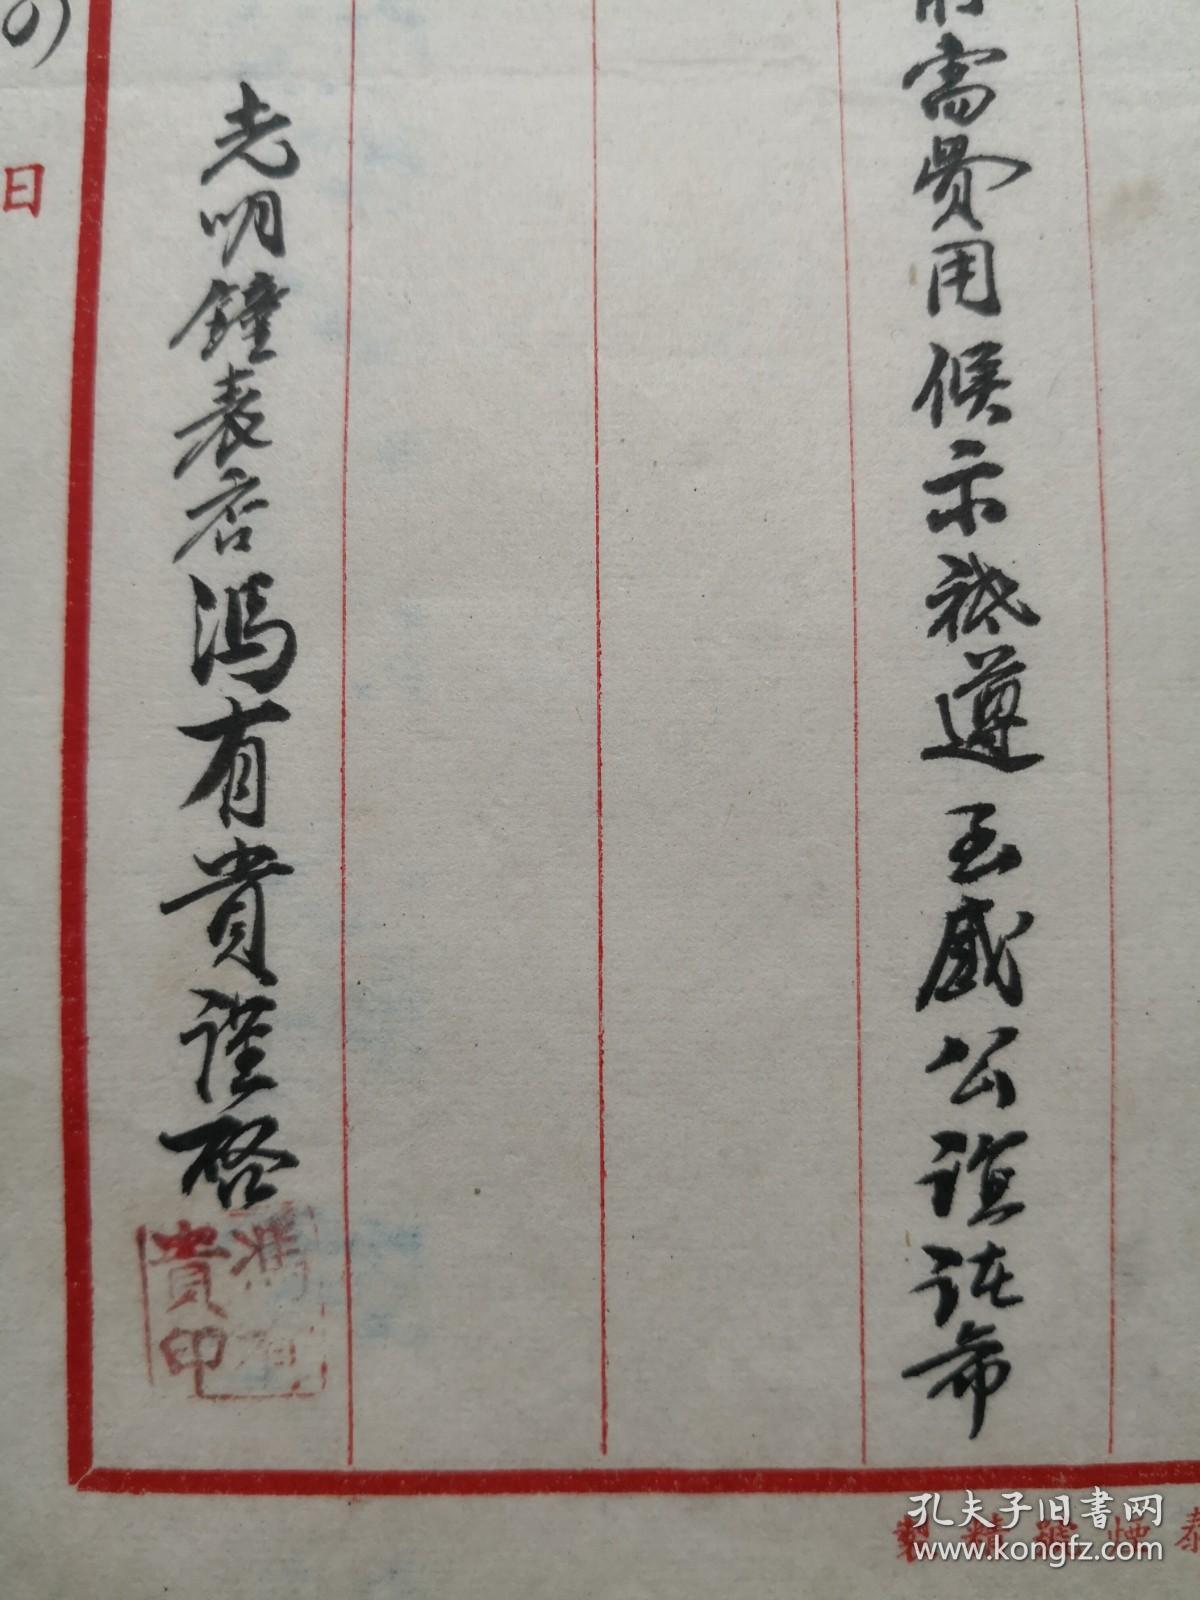 所需費用候示祗遵至感公誼諸希
光明鐘表店馮有貴謹啓
日
馮有
貴印
泰煙號精製
孔夫子旧书网
www.kongfz.com